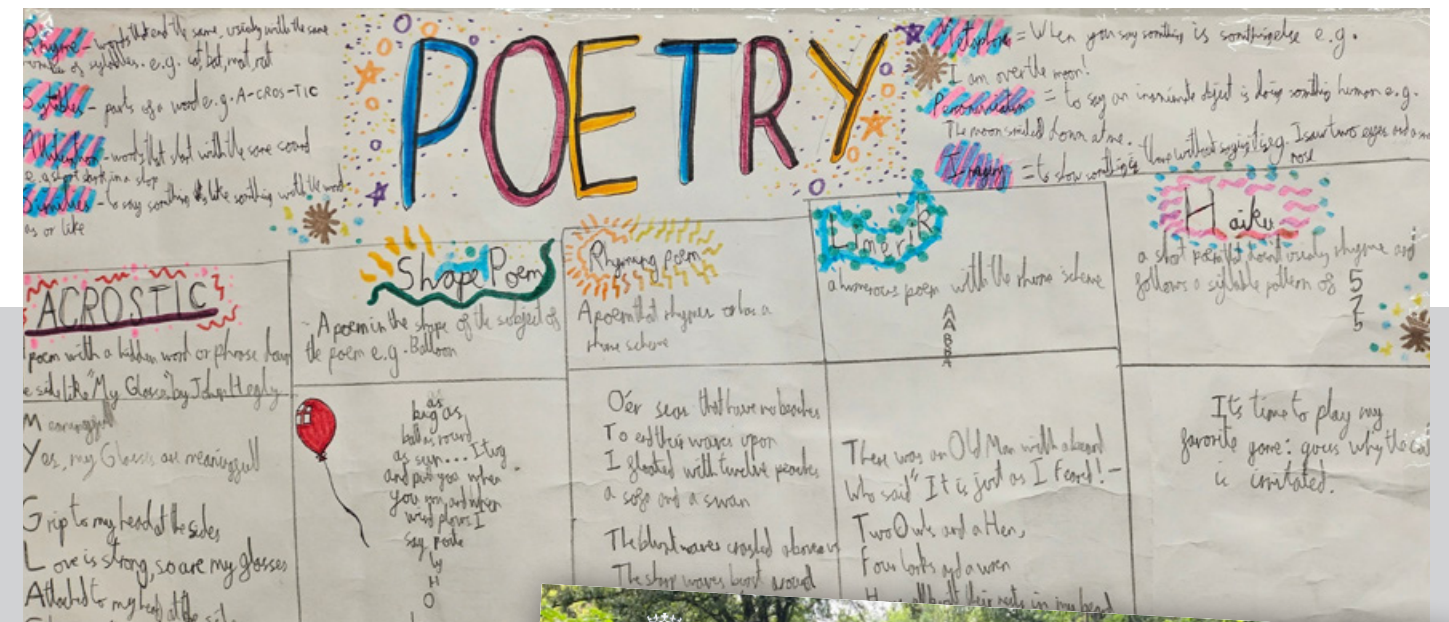 Rhyme - words that end the same, usually with the same
number of syllables. e.g. cat, bat, mat, rat
Syllables - parts of a word e.g. A-CROS-TIC
Alliteration - words that start with the same sound
e. a short shark in a shop
Similes - to say somthing is like somthing with the word
as or like
POETRY
Metaphore = When you say somthing is somthing else e.g.
I am over the moon!
Personification = to say an inanimate object is doing somthing human e.g.
The moon smiled down at me.
Imagery = to show somthing is there without saying it e.g. I saw two eyes and a
nose
ACROSTIC
poem with a hidden word or phrase down
e side like "My Glasses" by John Hegley
Meaningfull
Yes, my Glasses are meaningfull
Grip to my head at the sides
Love is strong, so are my glasses
Attached to my head at the
Shape Poem
A poem in the shape of the subject of
the poem e.g. Balloon
as
big as
ball as round
as sun... I tug
and pull you when
you run and when
wind blows I
say polite
ly
H
O
L
Rhyming poem
A poem that rhymes or has a
rhyme scheme
O'er seas that have no beaches
To end their waves upon
I floated with twelve peaches
a sofa and a swan
The blunt waves crashed above us
The sharp waves burst around
Limerik
a humerous poem with the rhyme scheme
A
A
B
B
A
There was an Old Man with a beard
Who said "It is just as I feard! -
Two Owls and a Hen,
Four larks and a wren
Have all built their nests in my beard
Haiku
a short poem that don't usualy rhyme and
follows a syllable pattern of 5
7
5
It's time to play my
favorite game: guess why the cat
is irritated.